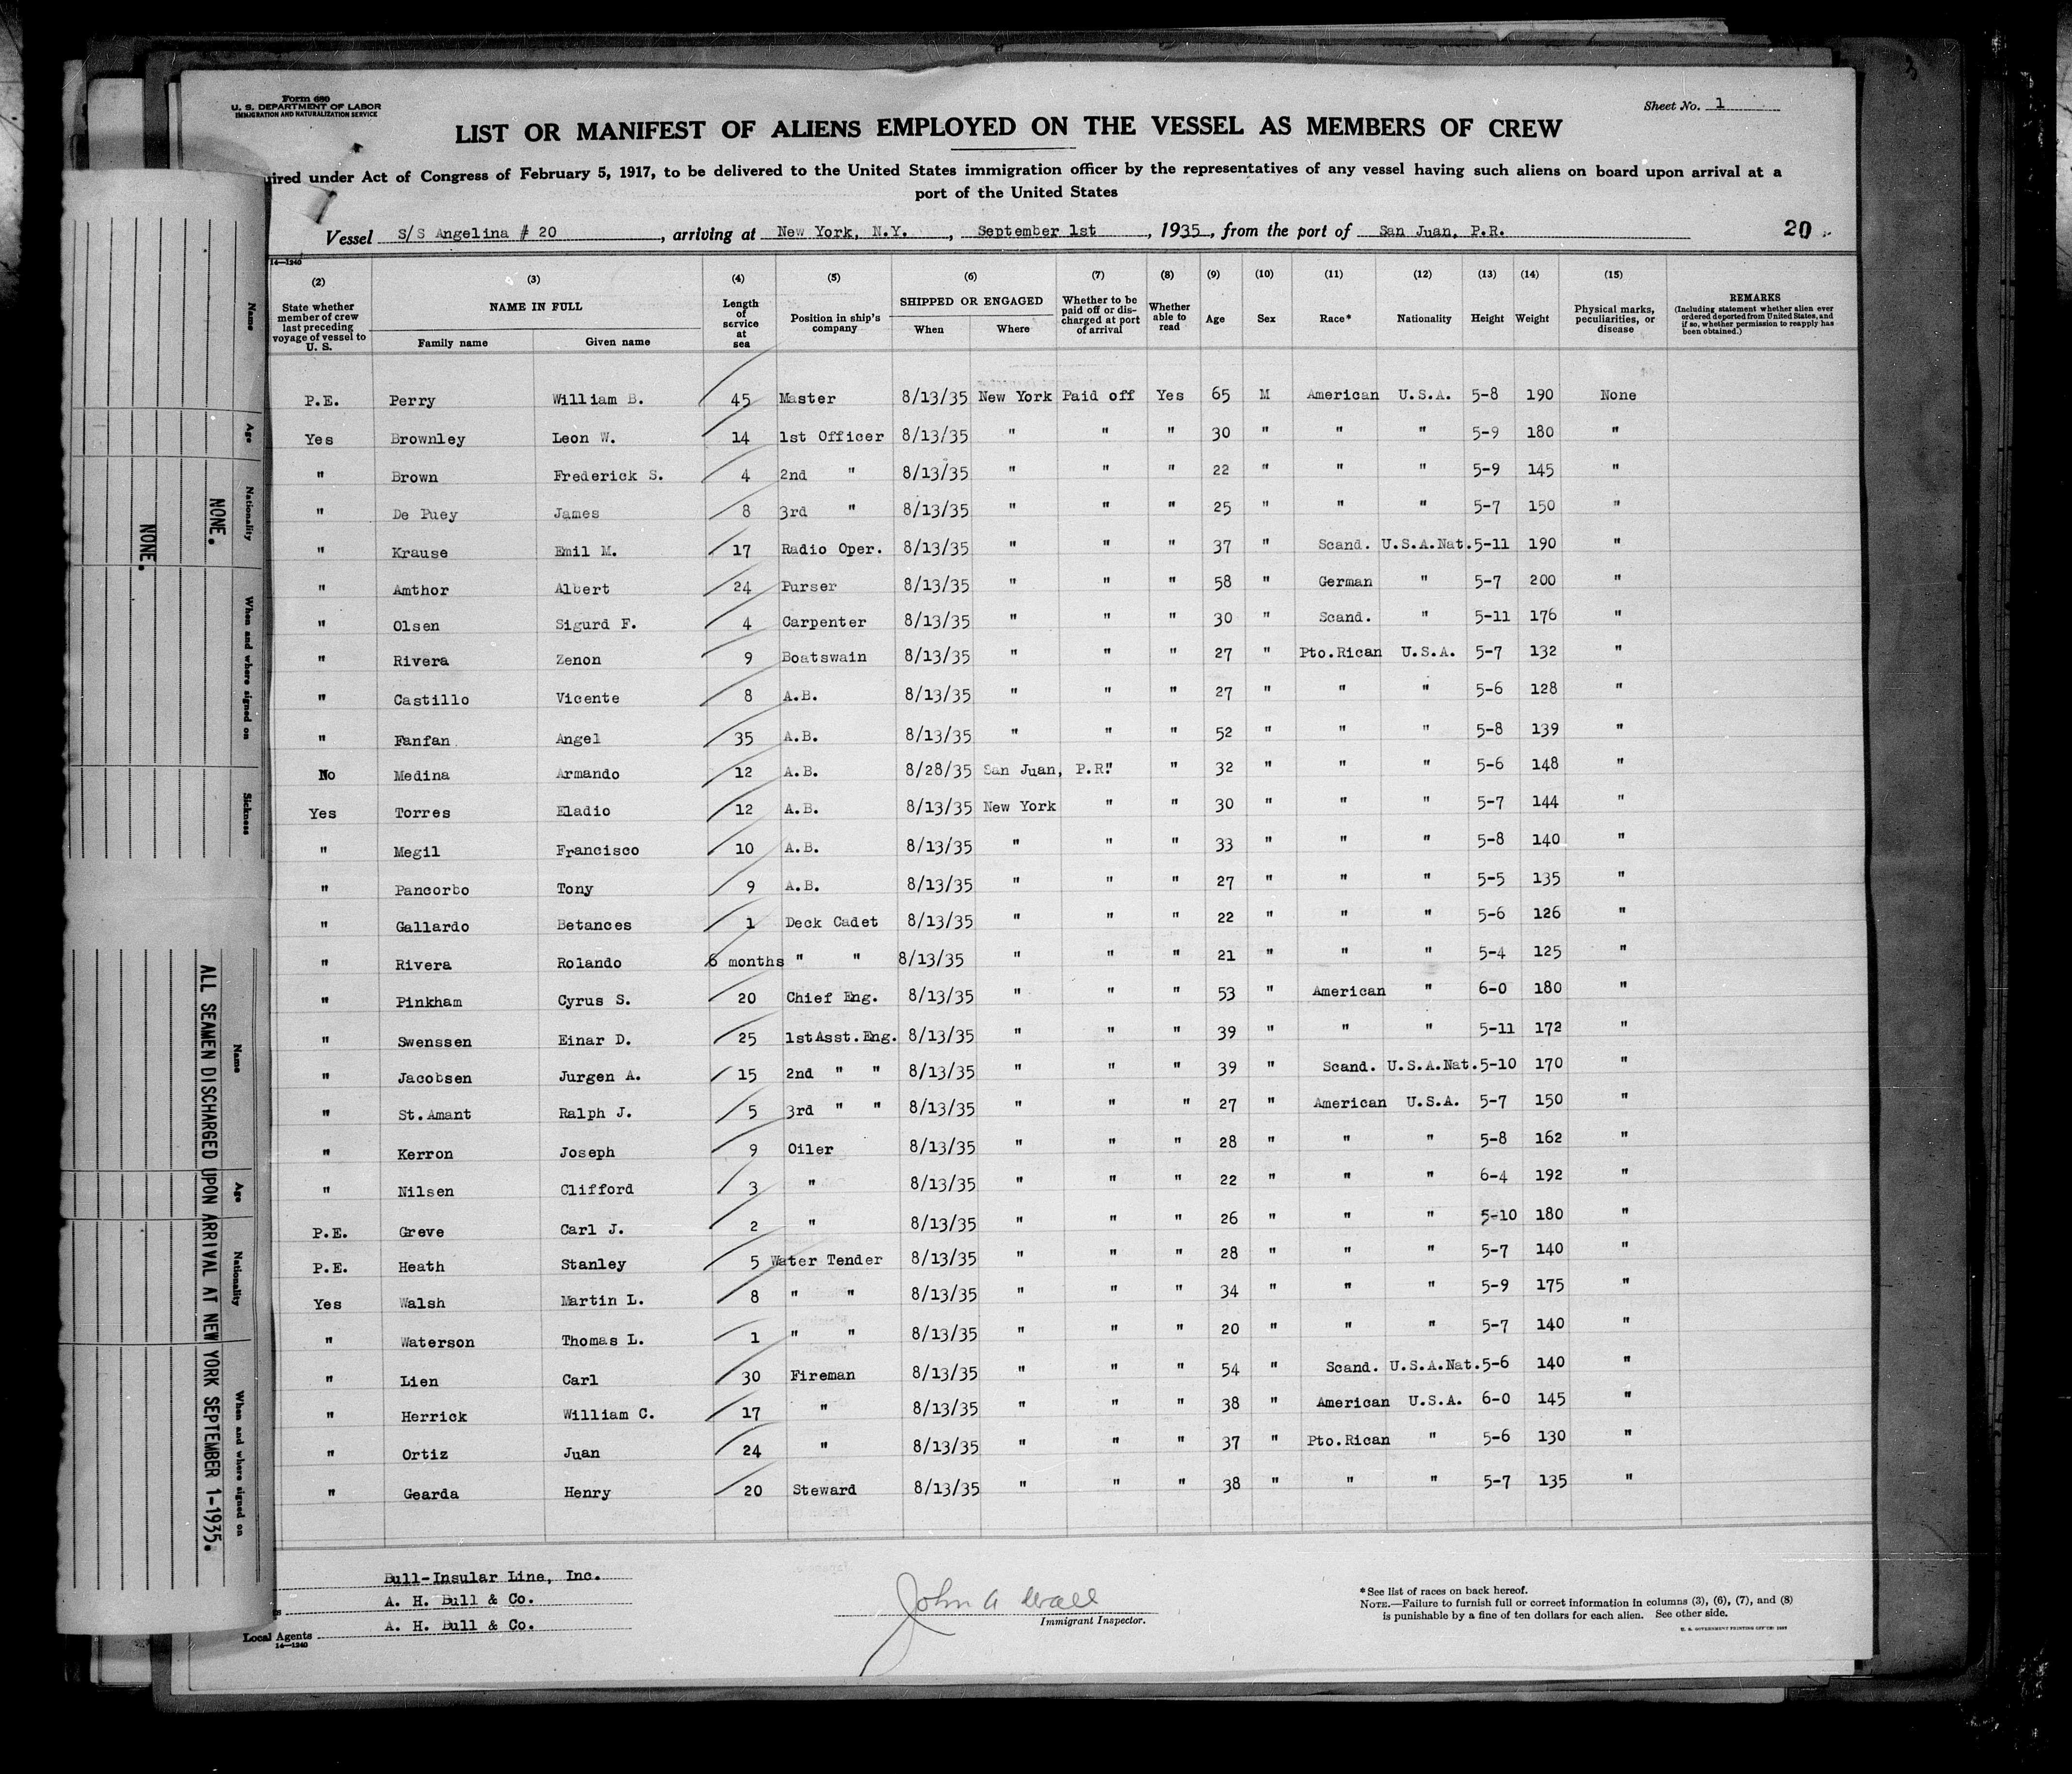 Form 680
U. S. DEPARTMENT OF LABOR
IMMIGRATION AND NATURALIZATION SERVICE
Sheet No. 1
LIST OR MANIFEST OF ALIENS EMPLOYED ON THE VESSEL AS MEMBERS OF CREW
uired under Act of Congress of February 5, 1917, to be delivered to the United States immigration officer by the representatives of any vessel having such aliens on board upon arrival at a
port of the United States
Vessel S/S Angelina # 20, arriving at New York, N.Y., September 1st, 1935, from the port of San Juan, P.R. 20
14—1240
(2) (3) (4) (5) (6) (7) (8) (9) (10) (11) (12) (13) (14) (15)
State whether member of crew last preceding voyage of vessel to U. S. NAME IN FULL Family name Given name Length of service at sea Position in ship's company SHIPPED OR ENGAGED When Where Whether to be paid off or discharged at port of arrival Whether able to read Age Sex Race* Nationality Height Weight Physical marks, peculiarities, or disease REMARKS (Including statement whether alien ever ordered deported from United States, and if so, whether permission to reapply has been obtained.)
P.E. Perry William B. 45 Master 8/13/35 New York Paid off Yes 65 M American U.S.A. 5-8 190 None
Yes Brownley Leon W. 14 1st Officer 8/13/35 " " " 30 " " " 5-9 180 "
" Brown Frederick S. 4 2nd " 8/13/35 " " " 22 " " " 5-9 145 "
" De Puey James 8 3rd " 8/13/35 " " " 25 " " " 5-7 150 "
" Krause Emil M. 17 Radio Oper. 8/13/35 " " " 37 " Scand. U.S.A.Nat. 5-11 190 "
" Amthor Albert 24 Purser 8/13/35 " " " 58 " German " 5-7 200 "
" Olsen Sigurd F. 4 Carpenter 8/13/35 " " " 30 " Scand. " 5-11 176 "
" Rivera Zenon 9 Boatswain 8/13/35 " " " 27 " Pto.Rican U.S.A. 5-7 132 "
" Castillo Vicente 8 A.B. 8/13/35 " " " 27 " " " 5-6 128 "
" Fanfan Angel 35 A.B. 8/13/35 " " " 52 " " " 5-8 139 "
No Medina Armando 12 A.B. 8/28/35 San Juan, P.R. " " 32 " " " 5-6 148 "
Yes Torres Eladio 12 A.B. 8/13/35 New York " " 30 " " " 5-7 144 "
" Megil Francisco 10 A.B. 8/13/35 " " " 33 " " " 5-8 140 "
" Pancorbo Tony 9 A.B. 8/13/35 " " " 27 " " " 5-5 135 "
" Gallardo Betances 1 Deck Cadet 8/13/35 " " " 22 " " " 5-6 126 "
" Rivera Rolando 6 months " " 8/13/35 " " " 21 " " " 5-4 125 "
" Pinkham Cyrus S. 20 Chief Eng. 8/13/35 " " " 53 " American " 6-0 180 "
" Swenssen Einar D. 25 1stAsst.Eng. 8/13/35 " " " 39 " " " 5-11 172 "
" Jacobsen Jurgen A. 15 2nd " " 8/13/35 " " " 39 " Scand. U.S.A.Nat. 5-10 170 "
" St.Amant Ralph J. 5 3rd " " 8/13/35 " " " 27 " American U.S.A. 5-7 150 "
" Kerron Joseph 9 Oiler 8/13/35 " " " 28 " " " 5-8 162 "
" Nilsen Clifford 3 " 8/13/35 " " " 22 " " " 6-4 192 "
P.E. Greve Carl J. 2 " 8/13/35 " " " 26 " " " 5-10 180 "
P.E. Heath Stanley 5 Water Tender 8/13/35 " " " 28 " " " 5-7 140 "
Yes Walsh Martin L. 8 " " 8/13/35 " " " 34 " " " 5-9 175 "
" Waterson Thomas L. 1 " " 8/13/35 " " " 20 " " " 5-7 140 "
" Lien Carl 30 Fireman 8/13/35 " " " 54 " Scand. U.S.A.Nat. 5-6 140 "
" Herrick William C. 17 " 8/13/35 " " " 38 " American U.S.A. 6-0 145 "
" Ortiz Juan 24 " 8/13/35 " " " 37 " Pto.Rican " 5-6 130 "
" Gearda Henry 20 Steward 8/13/35 " " " 38 " " " 5-7 135 "
Bull-Insular Line, Inc.
A. H. Bull & Co.
Local Agents A. H. Bull & Co.
14—1240
John A Wall
Immigrant Inspector.
*See list of races on back hereof.
NOTE.—Failure to furnish full or correct information in columns (3), (6), (7), and (8)
is punishable by a fine of ten dollars for each alien. See other side.
U. S. GOVERNMENT PRINTING OFFICE
Name Age Nationality When and where signed on Sickness
NONE.
NONE.
Name Age Nationality When and where signed on
ALL SEAMEN DISCHARGED UPON ARRIVAL AT NEW YORK SEPTEMBER 1-1935.